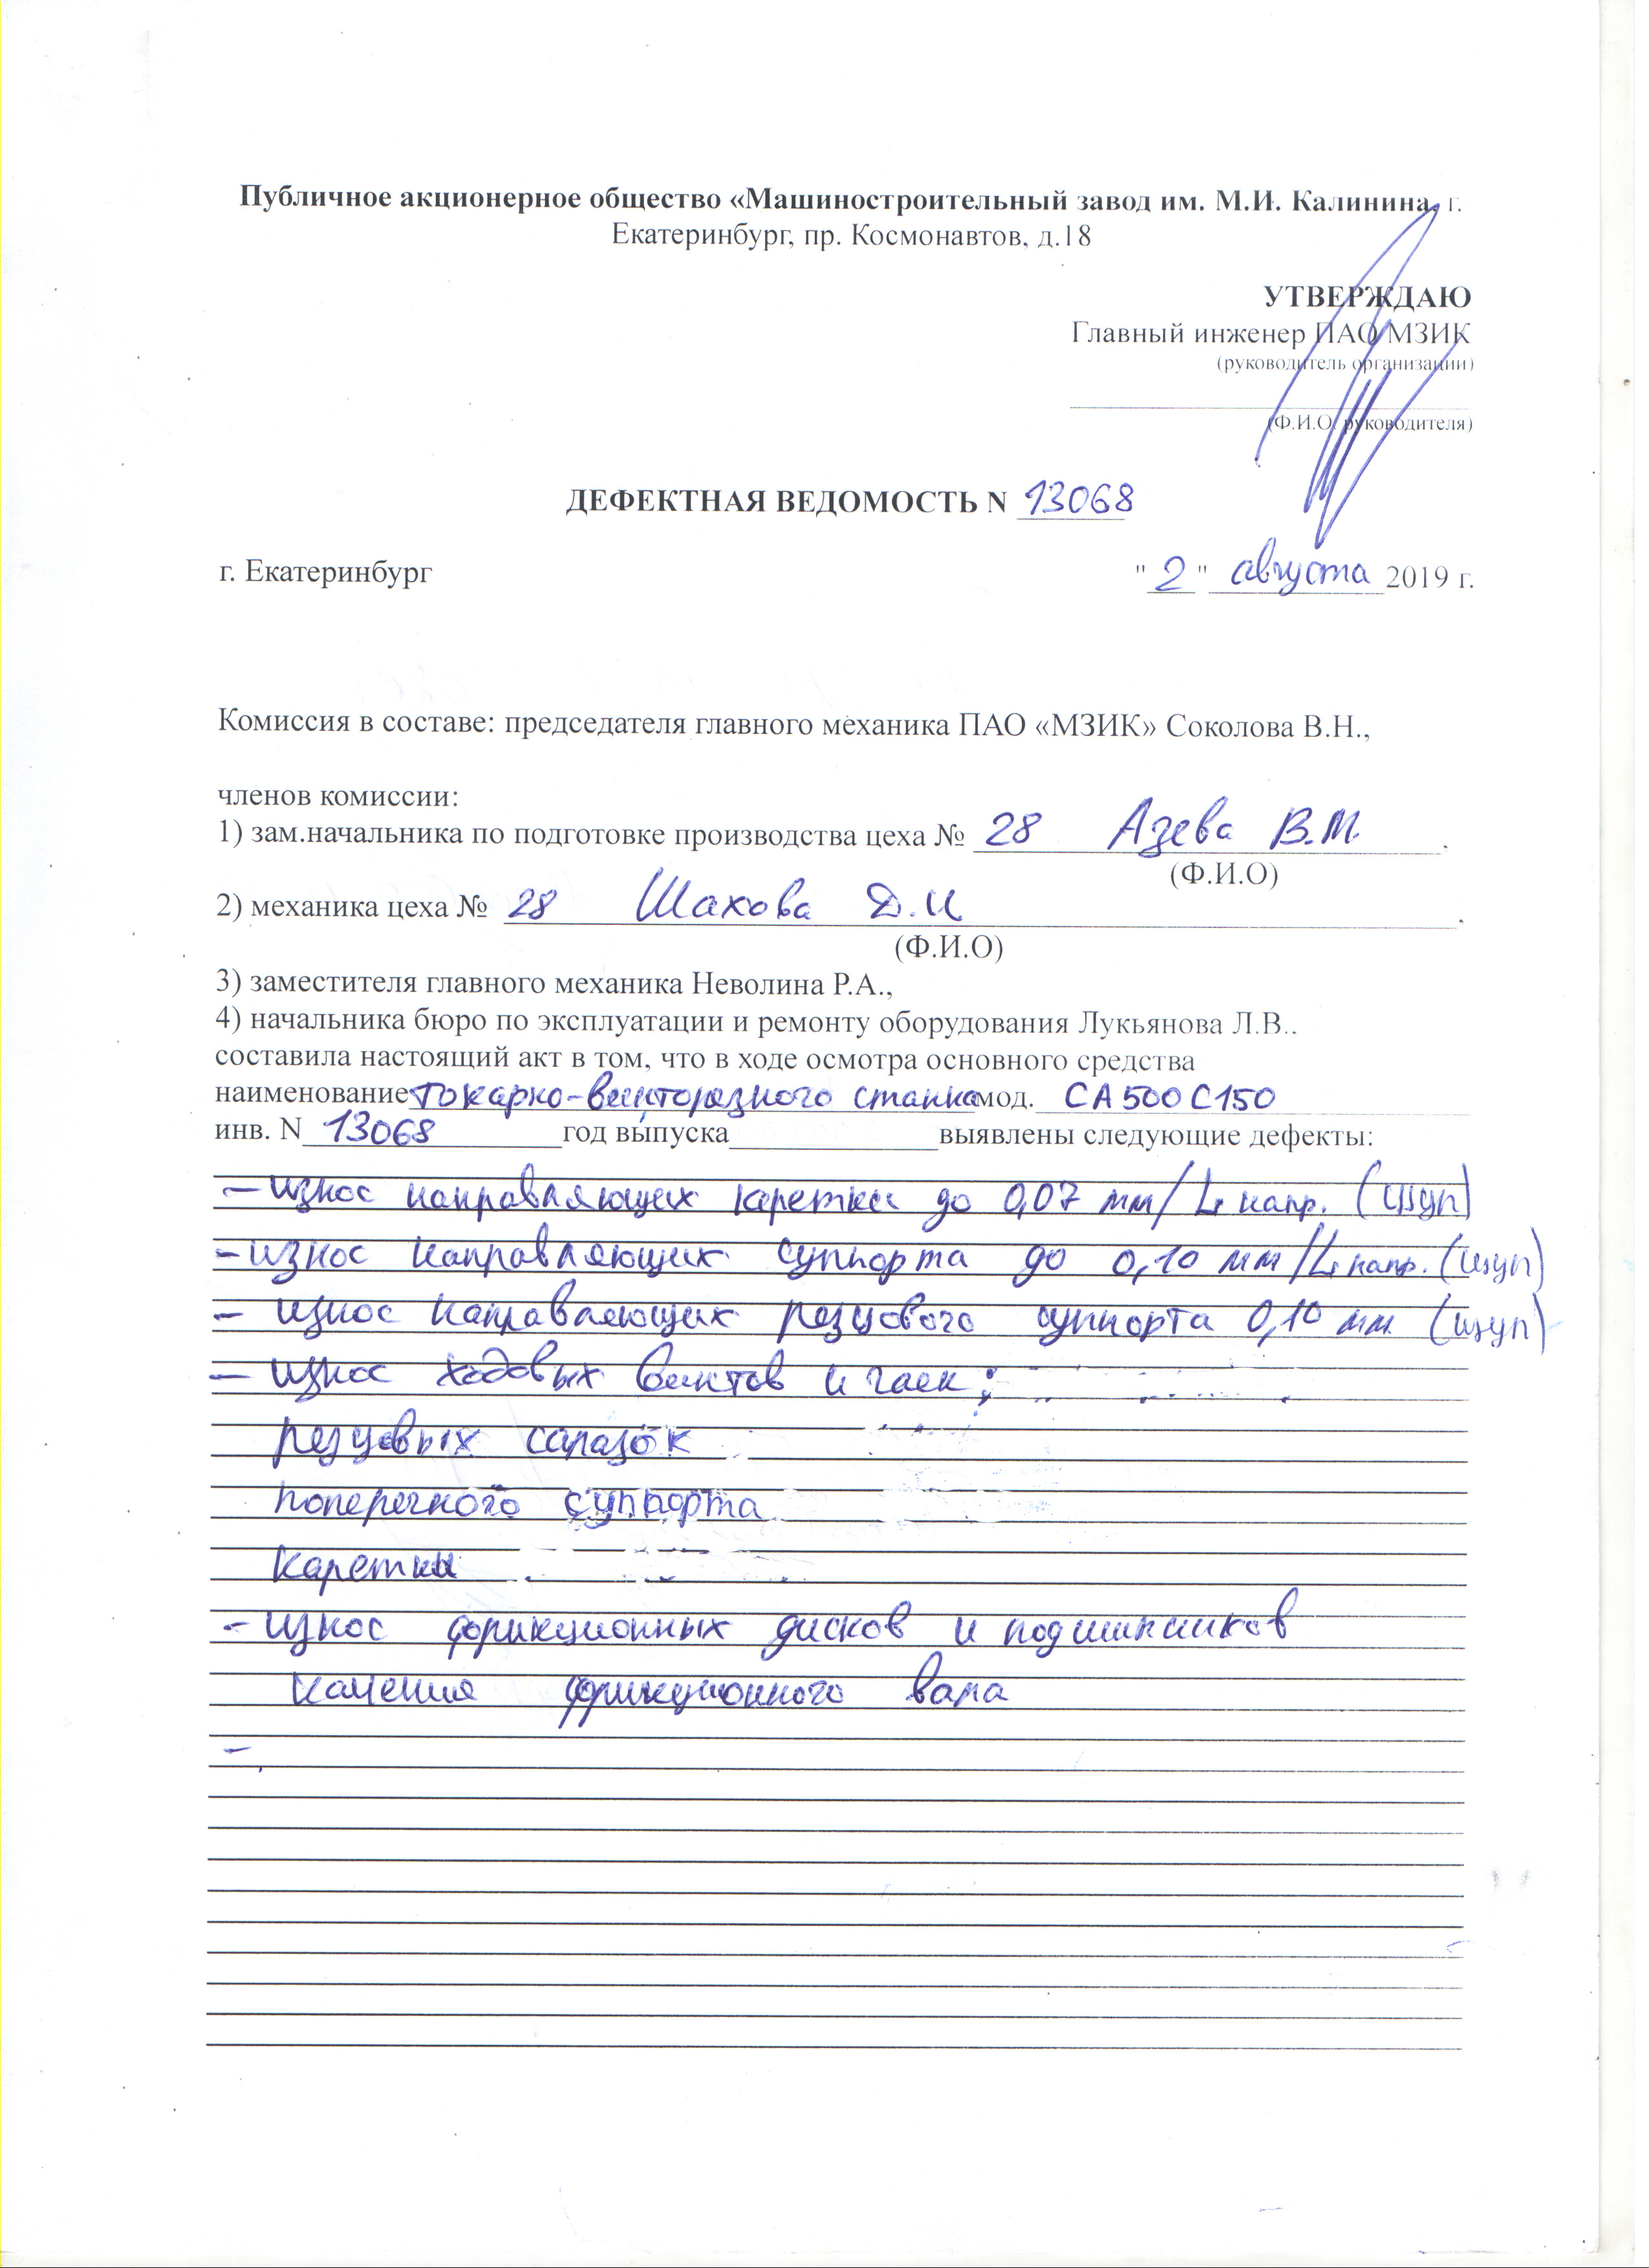 Публичное акционерное общество «Машиностроительный завод им. М.И. Калинина, г.
Екатеринбург, пр. Космонавтов, д.18
УТВЕРЖДАЮ
Главный инженер ПАО МЗИК
(руководитель организации)
(Ф.И.О. руководителя)
ДЕФЕКТНАЯ ВЕДОМОСТЬ N 13068
г. Екатеринбург "2" августа 2019 г.
Комиссия в составе: председателя главного механика ПАО «МЗИК» Соколова В.Н.,
членов комиссии:
1) зам.начальника по подготовке производства цеха № 28 Азева В.М.
(Ф.И.О)
2) механика цеха № 28 Шахова Д.И.
(Ф.И.О)
3) заместителя главного механика Неволина Р.А.,
4) начальника бюро по эксплуатации и ремонту оборудования Лукьянова Л.В..
составила настоящий акт в том, что в ходе осмотра основного средства
наименование токарно-винторезного станка мод. СА500С150
инв. N 13068 год выпуска выявлены следующие дефекты:
– износ направляющих каретки до 0,07 мм/L напр. (щуп)
– износ направляющих суппорта до 0,10 мм/L напр. (щуп)
– износ направляющих резцового суппорта 0,10 мм (щуп)
– износ ходовых винтов и гаек:
резцовых салазок
поперечного суппорта
каретки
– износ фрикционных дисков и подшипников
качения фрикционного вала
–